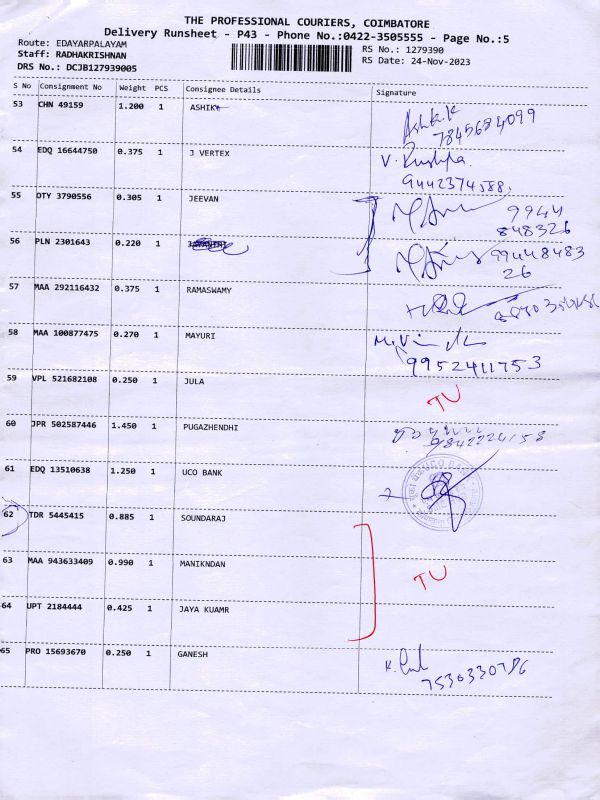 THE PROFESSIONAL COURIERS, COIMBATORE
Delivery Runsheet - P43 - Phone No.:0422-3505555 - Page No.:5
Route: EDAYARPALAYAM
RS No.: 1279390
Staff: RADHAKRISHNAN
RS Date: 24-Nov-2023
DRS No.: DCJB127939005
S No Consignment No Weight PCS Consignee Details Signature
53 CHN 49159 1.200 1 ASHIK
Ashik.K
7845684099
54 EDQ 16644750 0.375 1 J VERTEX V. Pushpa
9442374588.
55 DTY 3790556 0.305 1 JEEVAN 9944
848326
56 PLN 2301643 0.220 1 JAYANTHI 99448483
26
57 MAA 292116432 0.375 1 RAMASWAMY
58 MAA 100877475 0.270 1 MAYURI
9952411753
59 VPL 521682108 0.250 1 JULA TU
60 JPR 502587446 1.450 1 PUGAZHENDHI
9842224158
61 EDQ 13510638 1.250 1 UCO BANK
62 TDR 5445415 0.885 1 SOUNDARAJ
63 MAA 943633409 0.990 1 MANIKNDAN TU
64 UPT 2184444 0.425 1 JAYA KUAMR
65 PRO 15693670 0.250 1 GANESH
7530330786